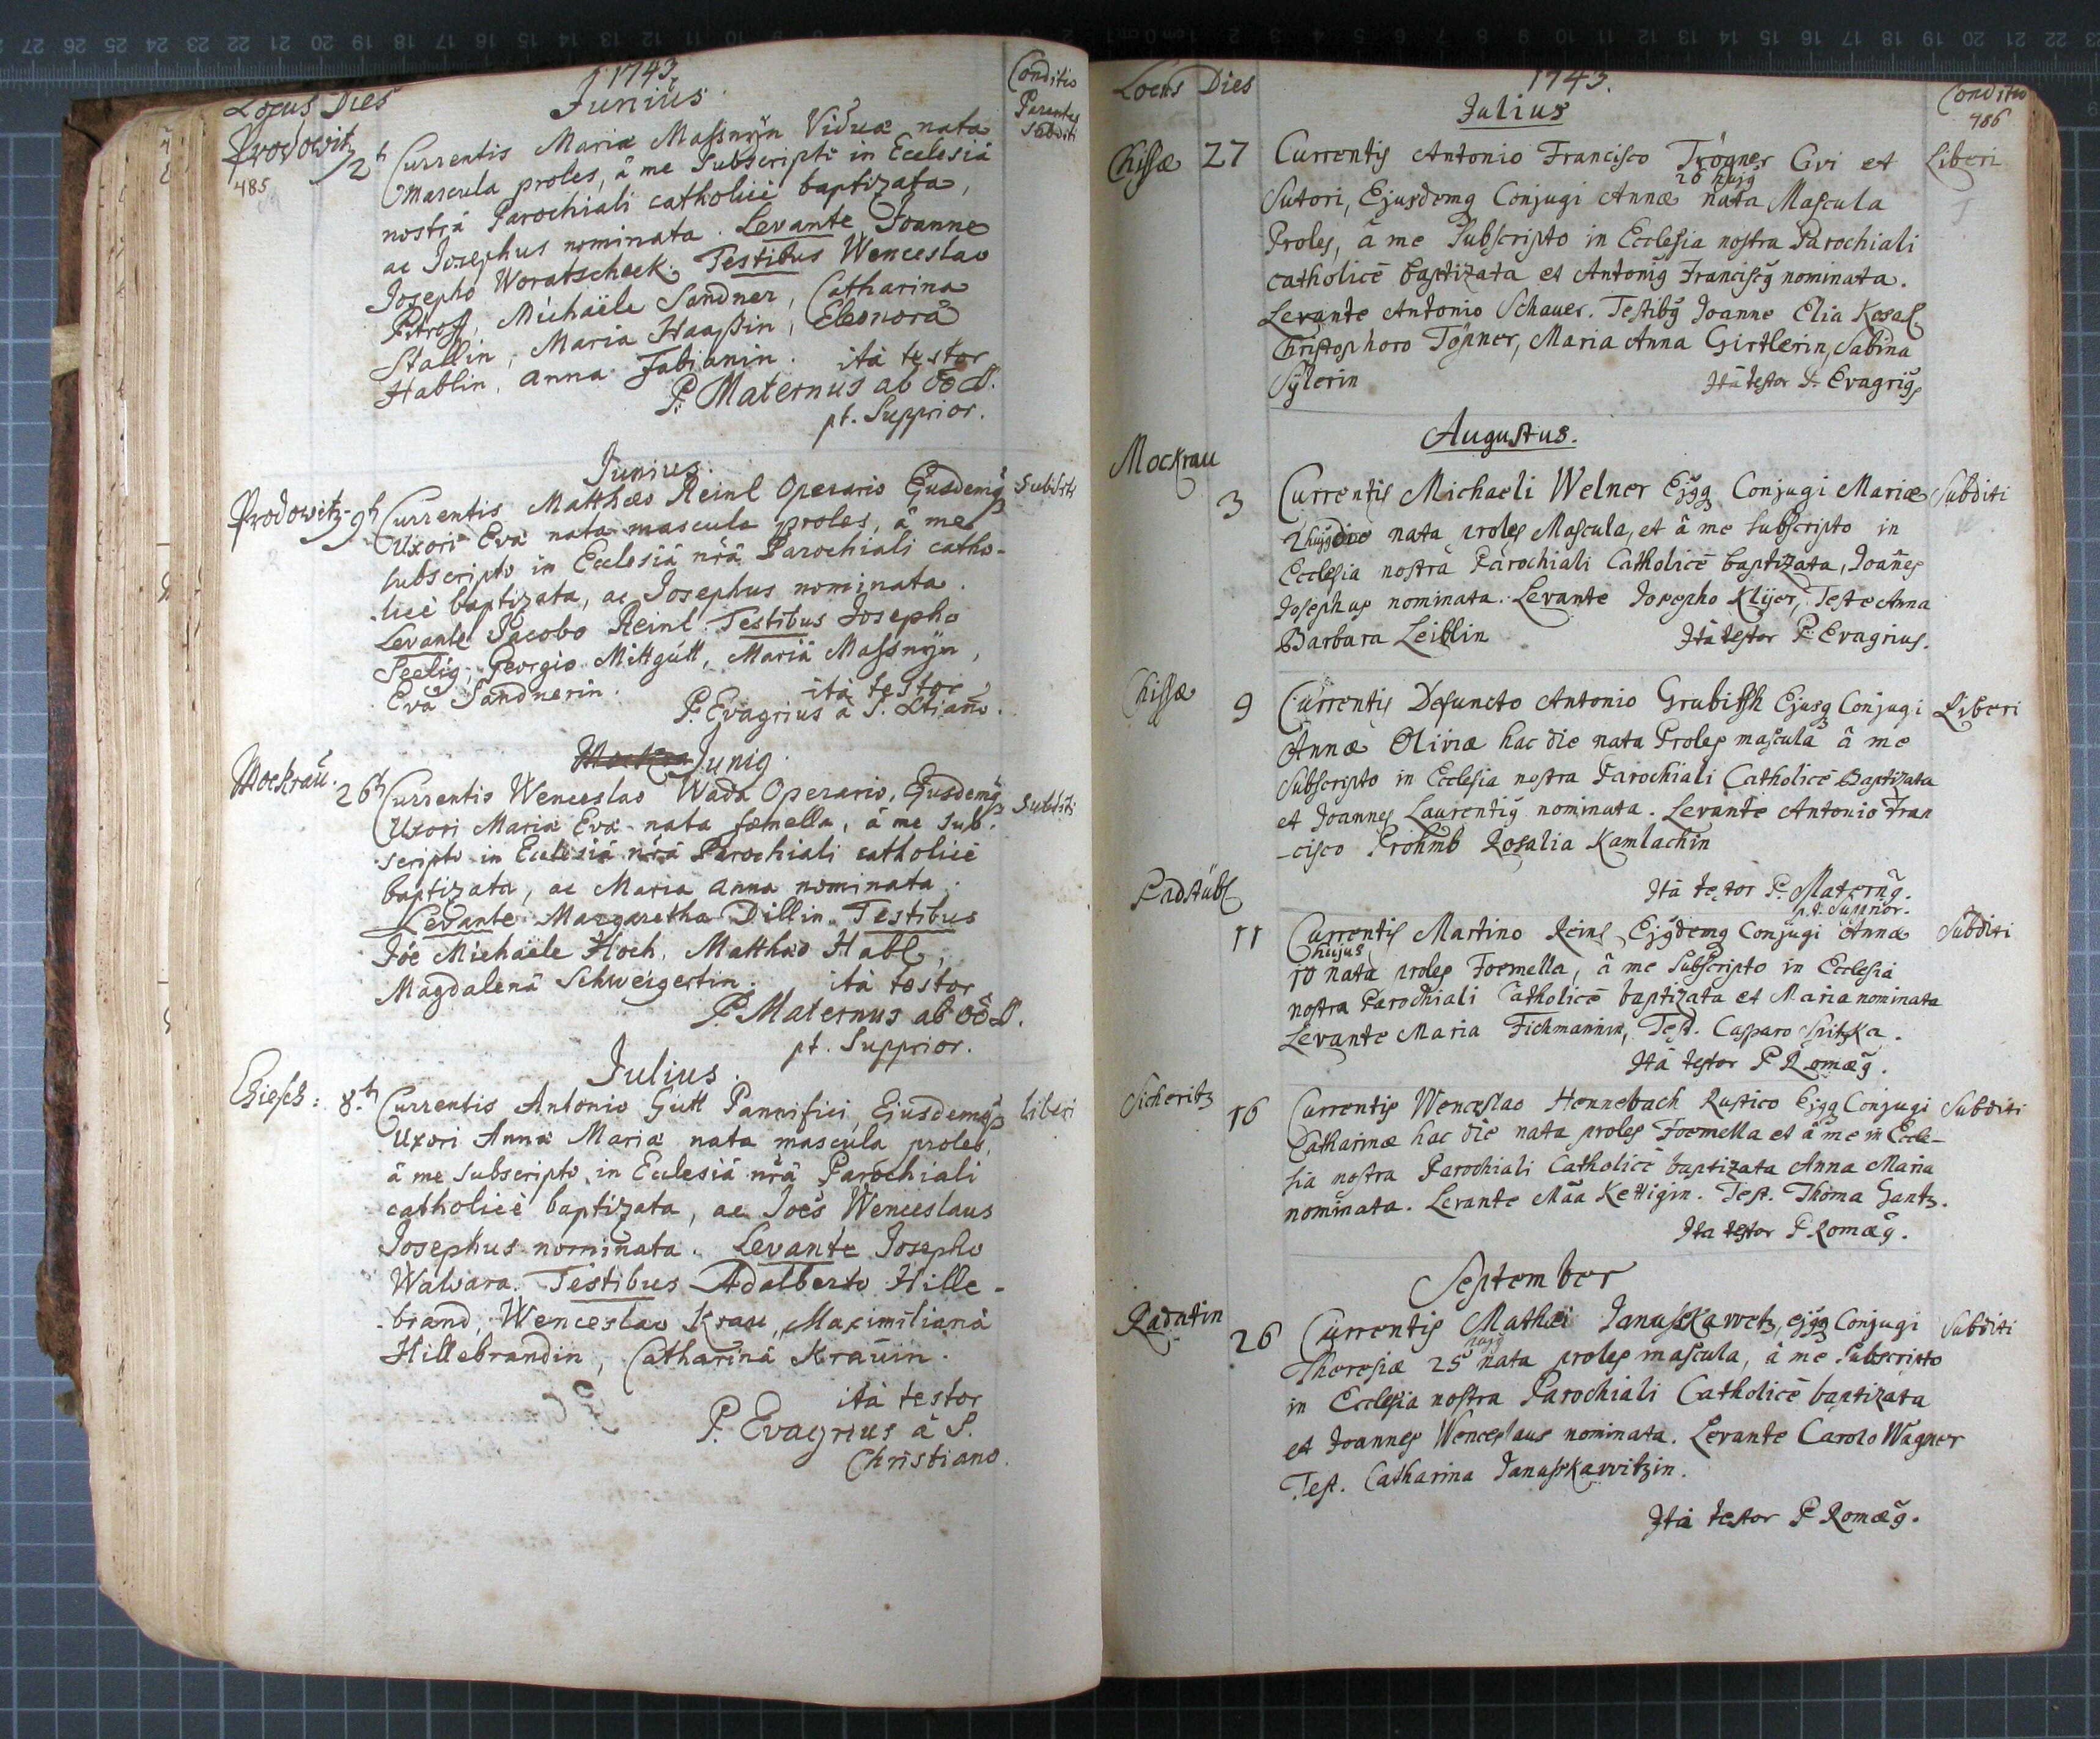 1743.
Locus Dies Junius. Conditio
Parentes
Subditi
Prodowitz
485
2t Currentis Mariæ Massnÿn Viduæ nata
Mascula proles, â me Subscripti in Ecclesiâ
nostrâ Parochiali catholicè baptizata,
ac Josephus nominata. Levante Joanne
Josepho Woratscheck. Testibus Wenceslao
Petross, Michaële Sandner, Catharina
Stallin, Maria Haaßin, Eleonorâ
Hablin, Anna Fabianin. ità testor
P. Maternus ab OO SS.
pt. Supprior.
Junius.
Prodowitz 9t Currentis Matthæo Reinl Operario Ejusdemq Subditi
Uxori Eva nata mascula proles, â me
subscripto in Ecclesiâ nrâ Parochiali catho-
licè baptizata, ac Josephus nominata.
Levante Jacobo Reinl. Testibus Josepho
Seelig, Georgio Mittgutt, Mariâ Massnÿn,
Evâ Sandnerin. ità testor
P. Evagrius à S. Xtiano.
Junig.
Mockrau. 26t Currentis Wenceslao Wada Operario, Ejusdemq Subditi
Uxori Maria Eva nata fœmella, â me sub-
scripto in Ecclesiâ nrâ Parochiali catholicè
baptizata, ac Maria Anna nominata.
Levante Margaretha Dillin. Testibus
Jôe Michaële Hoch, Matthæo Habl,
Magdalenâ Schweigertin. ità testor
P. Maternus ab OO SS.
pt. Supprior.
Julius.
Chiesch: 8.t Currentis Antonio Gütt Pannifici, Ejusdemq liberi
Uxori Anna Maria nata mascula proles,
â me subscripto in Ecclesiâ nrâ Parochiali
catholicè baptizata, ac Joês Wenceslaus
Josephus nominata. Levante Josepho
Walvara. Testibus Adalberto Hille-
brand, Wenceslao Krau, Maximilianâ
Hillebrandin, Catharinâ Krauin.
ità testor
P. Evagrius â S.
Christiano.
1743.
Locus Dies Conditio
Julius 486
Chissæ 27 Currentis Antonio Francisco Trögner Civi et Liberi
26 hujg
Sutori, Ejusdemq Conjugi Annæ nata Mascula
Proles, â me Subscripto in Ecclesia nostra Parochiali
catholicè baptizata et Antonig Franciscg nominata.
Levante Antonio Schauer. Testibg Joanne Elia Kosal
Christophoro Töpner, Maria Anna Girtlerin, Sabina
Sÿlerin Ità testor P. Evagrig
Augustus.
Mockrau
3 Currentis Michaeli Welner Ejgq Conjugi Mariæ Subditi
2 hujg die nata proles Mascula, et â me subscripto in
Ecclesia nostra Parochiali Catholicè baptizata, Joañes
Josephus nominata. Levante Josepho Klijer, Teste Anna
Barbara Leiblin Ità testor P. Evagrius.
Chissæ 9 Currentis Defuncto Antonio Grubitsh Ejusq Conjugi Liberi
Annæ Oliviæ hac die nata Proles mascula â me
Subscripto in Ecclesia nostra Parochiali Catholicè Baptizata
et Joannes Laurentig nominata. Levante Antonio Fran
-cisco Prohmb Rosalia Kamlachin
Ità testor P. Materng.
pt. Supprior.
Padstübl
11 Currentis Martino Reinl Ejgdemq Conjugi Anna Subditi
hujus
10 nata proles Foemella, â me Subscripto in Ecclesia
nostra Parochiali Catholicè baptizata et Maria nominata
Levante Maria Fichmannin, Test. Casparo Spitzka.
Ità testor P Romæg.
Sicheritz 16 Currentis Wenceslao Hennebach Rustico Ejgq Conjugi Subditi
Catharinæ hac die nata proles Foemella et â me in Eccle-
sia nostra Parochiali Catholicè baptizata Anna Maria
nominata. Levante Mãa Kettigin. Test. Thoma Gantz.
Ita testor P Romæg.
September
Radatin 26 Currentis Mathæi Janusskawetz, ejgq Conjugi Subditi
hujg
Theresiæ 25 nata proles mascula, â me Subscripto
in Ecclesia nostra Parochiali Catholicè baptizata
et Joannes Wenceslaus nominata. Levante Carolo Wagner
Test. Catharina Janasskawitzin.
Ità testor P Romæg.